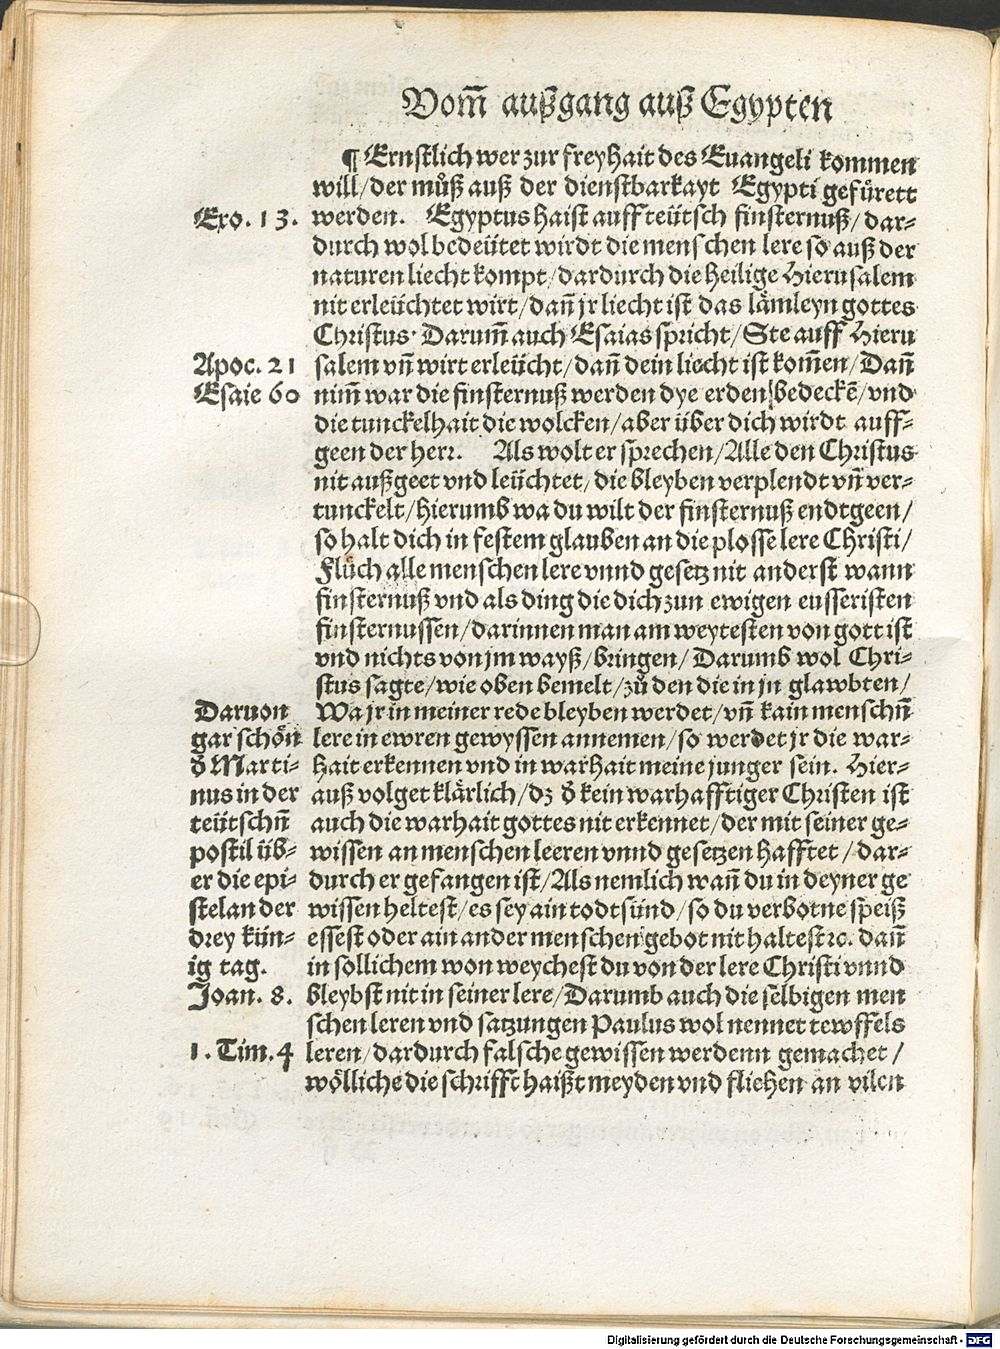 Vom̃ außgang auß Egypten
¶ Ernstlich wer zur freyhait des Euangeli kommen
will/der můß auß der dienstbarkayt Egypti gefürett
Exo. 13. werden. Egyptus haist auff teütsch finsternuß/dar-
durch wol bedeütet wirdt die menschen lere so auß der
naturen liecht kompt/dardurch die heilige Hierusalem
nit erleüchtet wirt/dañ jr liecht ist das lämleyn gottes
Christus. Darum̃ auch Esaias spricht/Ste auff Hieru
Apoc. 21 salem vñ wirt erleücht/dañ dein liecht ist kom̃en/Dañ
Esaie 60 nim̃ war die finsternuß werden dye erden bedeckẽ/vnd
die tunckelhait die wolcken/aber über dich wirdt auff-
geen der herr. Als wolt er sprechen/Alle den Christus
nit außgeet vnd leüchtet/die bleyben verplendt vñ ver-
tunckelt/hierumb wa du wilt der finsternuß endtgeen/
so halt dich in festem glauben an die plosse lere Christi/
Flůch alle menschen lere vnnd gesetz nit anderst wann
finsternuß vnd als ding die dich zun ewigen eusseristen
finsternussen/darinnen man am weytesten von gott ist
vnd nichts von jm wayß/bringen/Darumb wol Chri-
stus sagte/wie oben bemelt/zů den die in jn glawbten/
Daruon Wa jr in meiner rede bleyben werdet/vñ kain menschñ
gar schön lere in ewren gewyssen annemen/so werdet jr die war-
d̕ Marti- hait erkennen vnd in warhait meine junger sein. Hier-
nus in der auß volget klärlich/dz d̕ kein warhafftiger Christen ist
teütschñ auch die warhait gottes nit erkennet/der mit seiner ge-
postil üb- wissen an menschen leeren vnnd gesetzen hafftet/dar-
er die epi- durch er gefangen ist/Als nemlich wañ du in deyner ge
stel an der wissen heltest/es sey ain todtsünd/so du verbotne speiß
drey kün- essest oder ain ander menschen gebot nit haltest ⁊c. dañ
ig tag. in sollichem won weychest du von der lere Christi vnnd
Joan. 8. bleybst nit in seiner lere/Darumb auch die selbigen men
schen leren vnd satzungen Paulus wol nennet tewffels
1. Tim. 4 leren/dardurch falsche gewissen werdenn gemachet/
wölliche die schrifft haißt meyden vnd fliehen an vilen
Digitalisierung gefördert durch die Deutsche Forschungsgemeinschaft - DFG